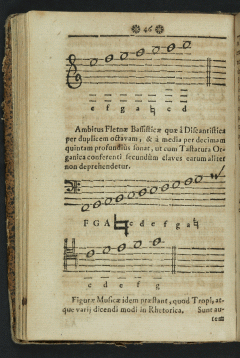 46
e f g a ♮ c d
Ambitus Fletnæ Bassisticæ quæ à Discantistica
per duplicem octavam, & à media per decimam
quintam profundius sonat, ut cum Tastatura Or-
ganica conferenti secundùm claves earum aliter
non deprehendetur.
F G A ♮ c d e f g a ♮
c d e f g
Figuræ Musicæ idem præstant, quod Tropi, at-
que varij dicendi modi in Rhetorica. Sunt au-
tem